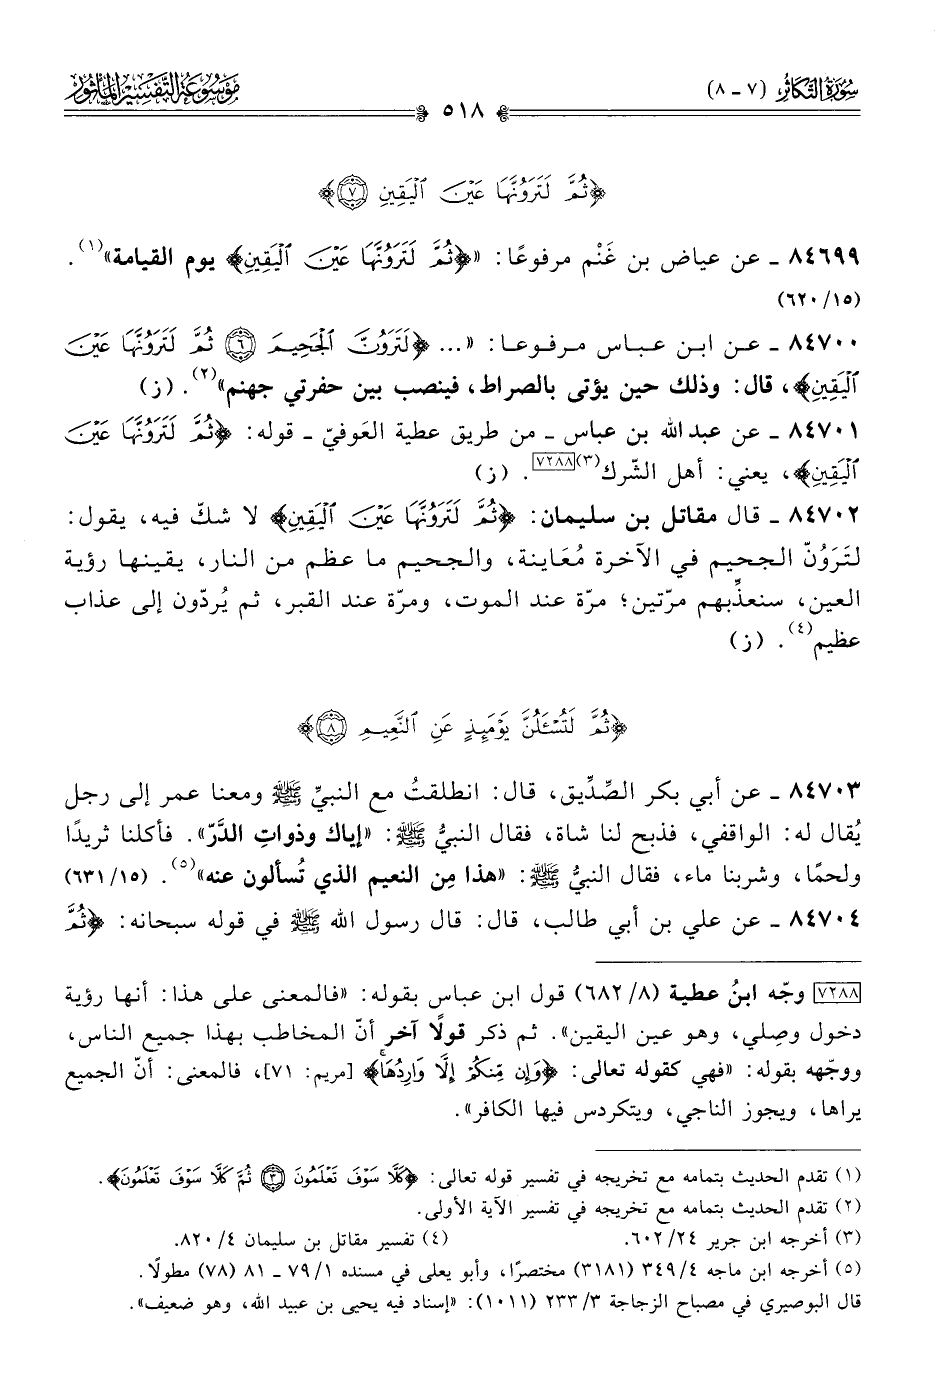 سُورَةُ التَّكَاثُرِ (٧ - ٨)
٥١٨
مَوْسُوعَةُ التَّفْسِيرِ المَأْثُور
﴿ثُمَّ لَتَرَوُنَّهَا عَيْنَ ٱلْيَقِينِ ٧﴾
٨٤٦٩٩ - عن عياض بن غَنْم مرفوعًا: «﴿ثُمَّ لَتَرَوُنَّهَا عَيْنَ ٱلْيَقِينِ﴾ يوم القيامة»(١).
(١٥/ ٦٢٠)
٨٤٧٠٠ - عن ابن عباس مرفوعا: «... ﴿لَتَرَوُنَّ ٱلْجَحِيمَ ٦ ثُمَّ لَتَرَوُنَّهَا عَيْنَ
ٱلْيَقِينِ﴾، قال: وذلك حين يؤتى بالصراط، فينصب بين حفرتي جهنم»(٢). (ز)
٨٤٧٠١ - عن عبد الله بن عباس - من طريق عطية العَوفيّ - قوله: ﴿ثُمَّ لَتَرَوُنَّهَا عَيْنَ
ٱلْيَقِينِ﴾، يعني: أهل الشّرك(٣)[٧٢٨٨]. (ز)
٨٤٧٠٢ - قال مقاتل بن سليمان: ﴿ثُمَّ لَتَرَوُنَّهَا عَيْنَ ٱلْيَقِينِ﴾ لا شكّ فيه، يقول:
لتَرَوُنّ الجحيم في الآخرة مُعَاينة، والجحيم ما عظم من النار، يقينها رؤية
العين، سنعذِّبهم مرّتين؛ مرّة عند الموت، ومرّة عند القبر، ثم يُردّون إلى عذاب
عظيم(٤). (ز)
﴿ثُمَّ لَتُسْـَٔلُنَّ يَوْمَئِذٍ عَنِ ٱلنَّعِيمِ ٨﴾
٨٤٧٠٣ - عن أبي بكر الصِّدِّيق، قال: انطلقتُ مع النبيِّ ﷺ ومعنا عمر إلى رجل
يُقال له: الواقفي، فذبح لنا شاة، فقال النبيُّ ﷺ: «إياك وذواتِ الدَّرّ». فأكلنا ثريدًا
ولحمًا، وشربنا ماء، فقال النبيُّ ﷺ: «هذا مِن النعيم الذي تُسألون عنه»(٥). (١٥/ ٦٣١)
٨٤٧٠٤ - عن علي بن أبي طالب، قال: قال رسول الله ﷺ في قوله سبحانه: ﴿ثُمَّ
[٧٢٨٨] وجّه ابنُ عطية (٨/ ٦٨٢) قول ابن عباس بقوله: «فالمعنى على هذا: أنها رؤية
دخول وصِلي، وهو عين اليقين». ثم ذكر قولًا آخر أنّ المخاطب بهذا جميع الناس،
ووجّهه بقوله: «فهي كقوله تعالى: ﴿وَإِن مِّنكُمْ إِلَّا وَارِدُهَا﴾ [مريم: ٧١]، فالمعنى: أنّ الجميع
يراها، ويجوز الناجي، ويتكردس فيها الكافر».
(١) تقدم الحديث بتمامه مع تخريجه في تفسير قوله تعالى: ﴿كَلَّا سَوْفَ تَعْلَمُونَ ٣ ثُمَّ كَلَّا سَوْفَ تَعْلَمُونَ﴾.
(٢) تقدم الحديث بتمامه مع تخريجه في تفسير الآية الأولى.
(٣) أخرجه ابن جرير ٢٤/ ٦٠٢. (٤) تفسير مقاتل بن سليمان ٤/ ٨٢٠.
(٥) أخرجه ابن ماجه ٤/ ٣٤٩ (٣١٨١) مختصرًا، وأبو يعلى في مسنده ١/ ٧٩ - ٨١ (٧٨) مطولًا.
قال البوصيري في مصباح الزجاجة ٣/ ٢٣٣ (١٠١١): «إسناد فيه يحيى بن عبيد الله، وهو ضعيف».